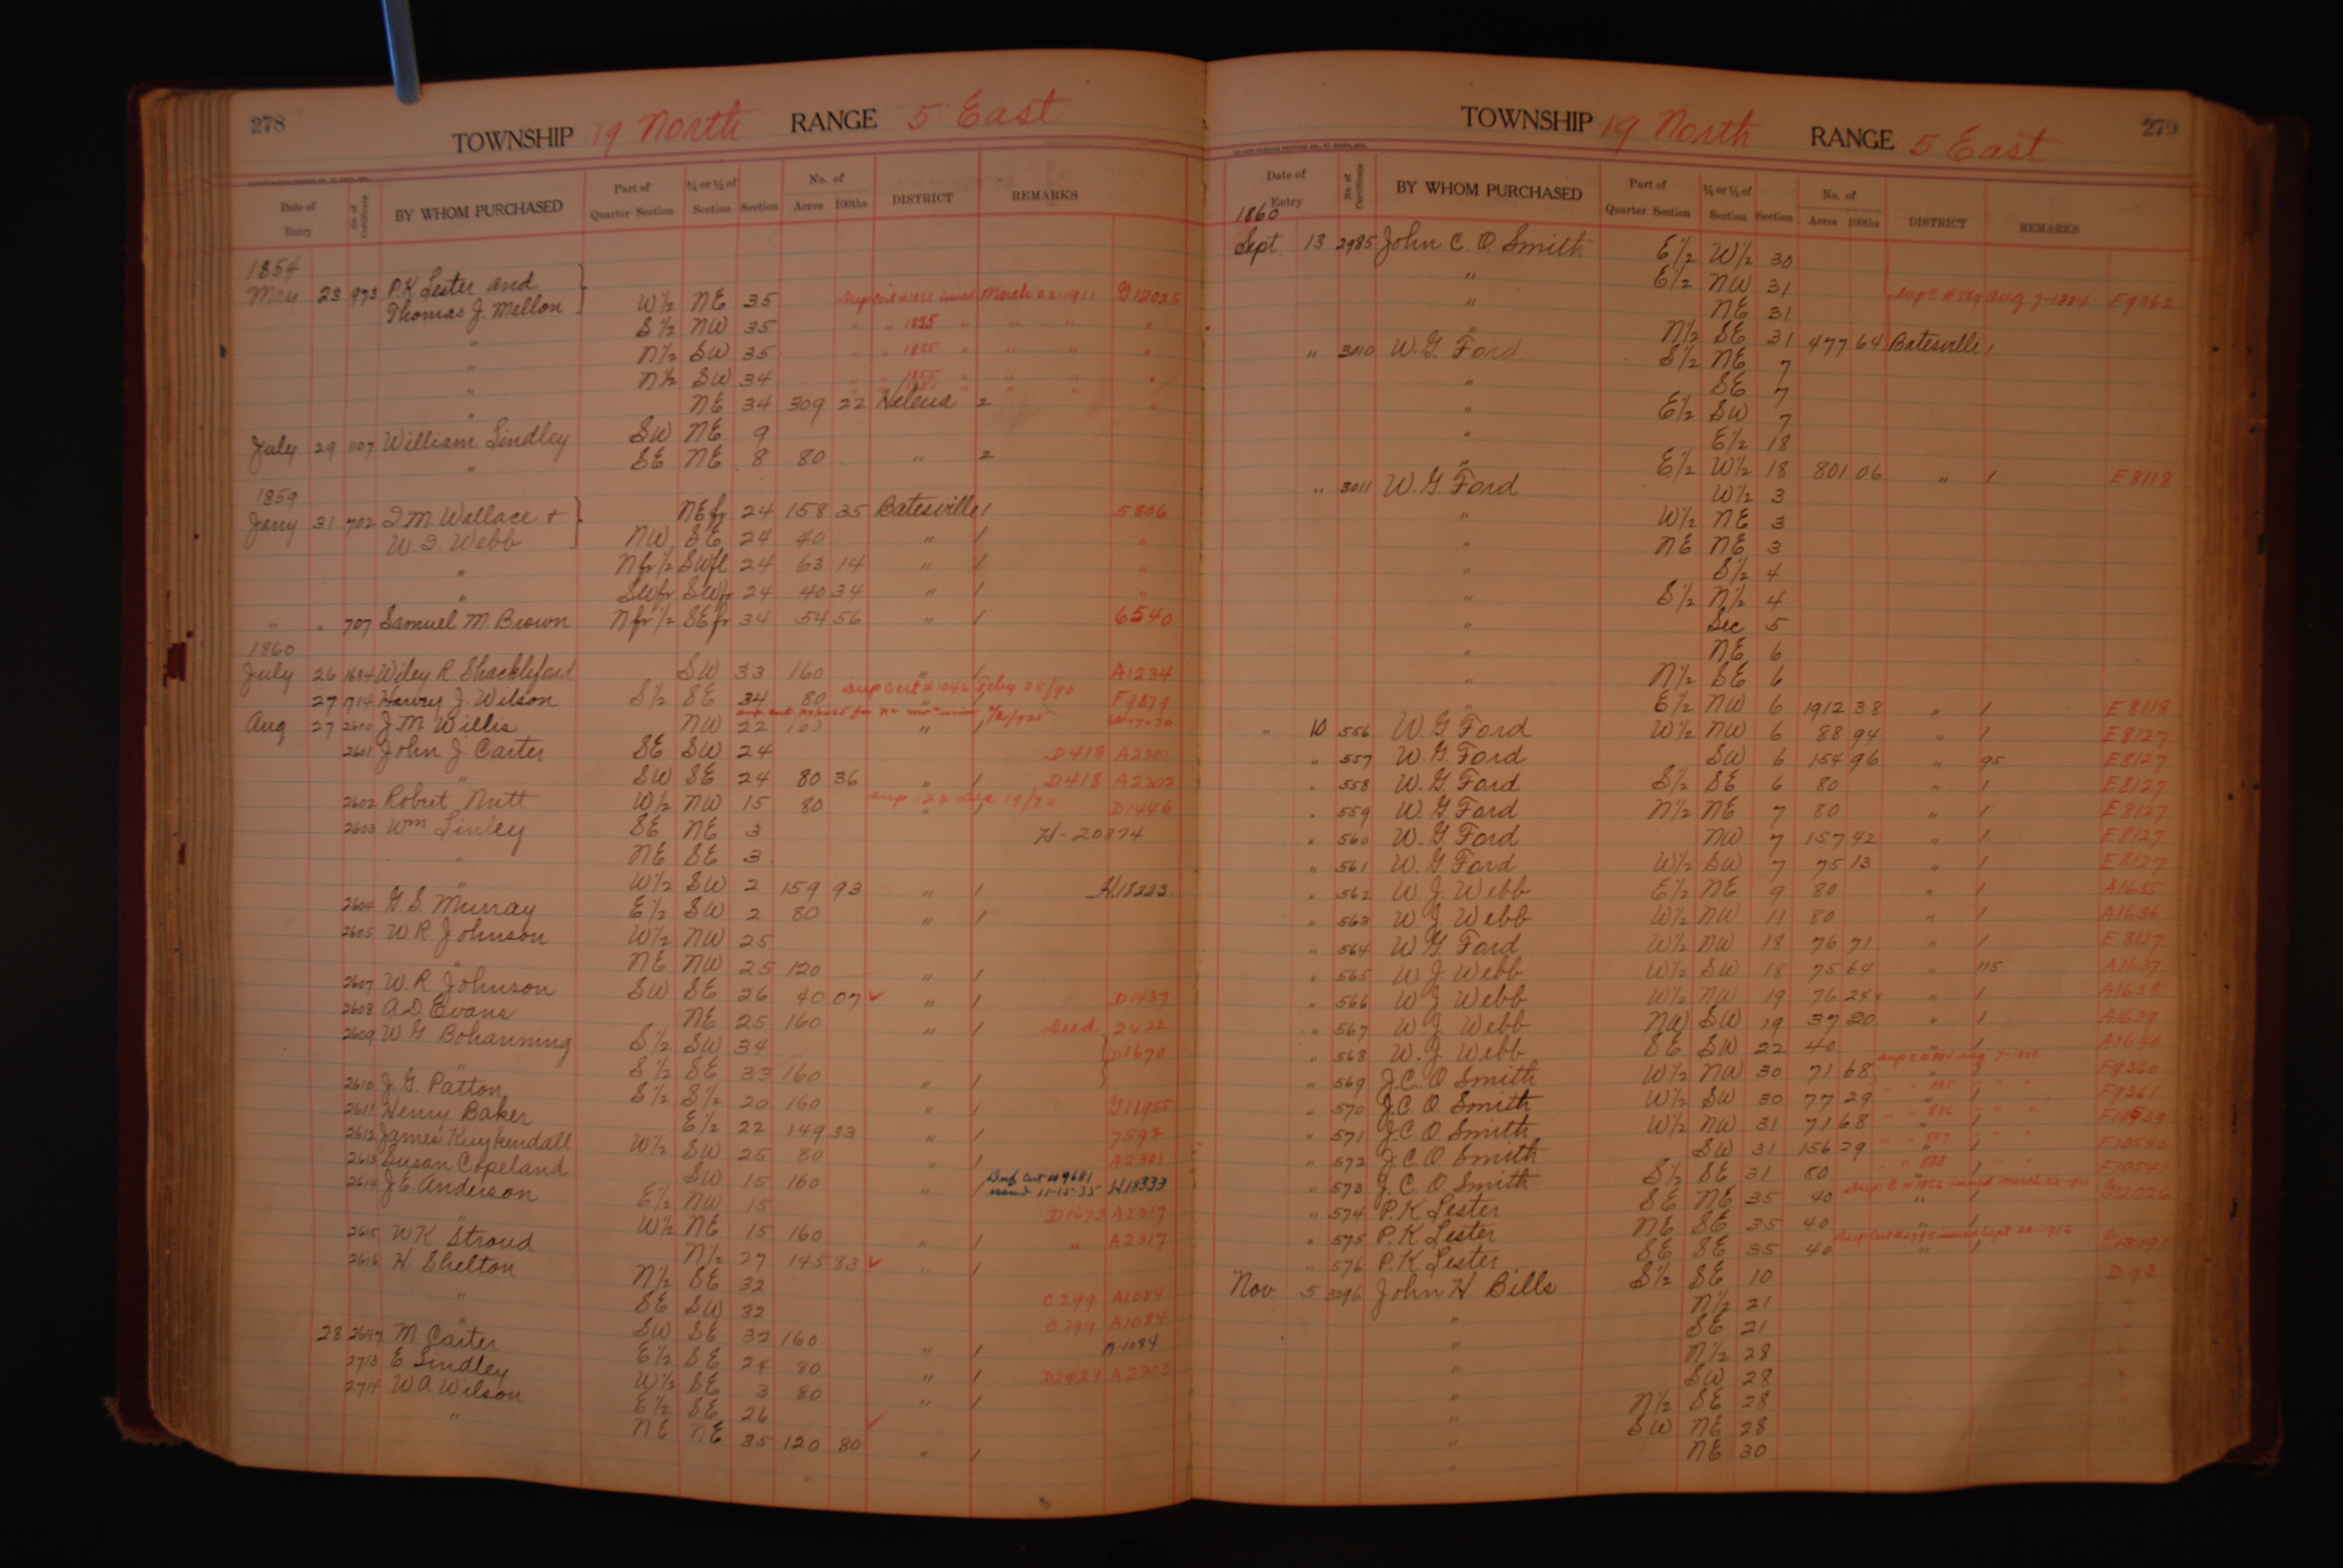 278
TOWNSHIP 19 North RANGE 5 East
Date of Entry No. of Certificate BY WHOM PURCHASED Part of Quarter Section ¼ or ½ of Section Section No. of Acres 100ths DISTRICT REMARKS
1854
May 23 973 P.K. Lester and
Thomas J. Mellon W½ NE 35 Dup Cert #1855 issued March 22-1911 G12025
" S½ NW 35 " " 1855 " " " "
" N½ SW 35 " " 1855 " " " "
" N½ SW 34 " " 1855 " " " "
" NE 34 309 22 Helena 2 "
July 29 1107 William Lindley SW NE 9
" SE NE 8 80 " 2
1859
Jany 31 702 I.M. Wallace + NEfr 24 158 35 Batesville 1 5806
W.I. Webb NW SE 24 40 " 1 "
" Nfr½ SWfl 24 63 14 " 1 "
" SWfr SWfr 24 40 34 " 1 "
" " 707 Samuel M. Brown Nfr½ SEfr 34 54 56 " 1 6540
1860
July 26 1684 Wiley R. Shackleford SW 33 160 " 1 A1234
27 1714 Harvey J. Wilson S½ SE 34 80 Dup Cert #1046 Feby 25/90 F9879
Aug 27 2600 J.M. Willis NW 22 " 1
2601 John J. Carter SE SW 24 D418 A2302
" SW SE 24 80 36 " 1 D418 A2302
2602 Robert Nutt W½ NW 15 80 Dup 122 Dec 19/70 " 1 D1446
2603 Wm Linley SE NE 3 H-20874
" NE SE 3
" W½ SW 2 159 93 " 1 H18223
2604 G.S. Murray E½ SW 2 80 " 1
2605 W R Johnson W½ NW 25
" NE NW 25 120 " 1
2607 W. R. Johnson SW SE 26 40 07 ✓ " 1 D1437
2608 A.D. Evans NE 25 160 " 1 Deed 2422
2609 W G Bohanning S½ SW 34 D1670
" S½ SE 33 160 " 1
2610 J.G. Patton S½ S½ 20 160 " 1 G11955
2611 Henry Baker E½ 22 149 33 " 1 7592
2612 James Kuykendall W½ SW 25 80 " 1 A2301
2613 Susan Copeland SW 15 160 " 1 Dup Cert #9681 issued 11-15-35 H18333
2614 J.E. Anderson E½ NW 15 D1673 A2317
" W½ NE 15 160 " 1 " A2317
2615 W K Stroud N½ 27 145 83 ✓ " 1
2616 H. Shelton N½ SE 32 C299 A1084
" SE SW 32 C299 A1084
" SW SE 32 160 " 1 A-1084
28 2647 M. Carter E½ SE 24 80 " 1 D1423 A2303
2713 E Lindley W½ SE 3 80 " 1
2714 W A Wilson E½ SE 26 ✓
" NE NE 35 120 80 " 1
TOWNSHIP 19 North RANGE 5 East
279
Date of Entry No. of Certificate BY WHOM PURCHASED Part of Quarter Section ¼ or ½ of Section Section No. of Acres 100ths DISTRICT REMARKS
1860
Sept. 13 2985 John C. O. Smith E½ W½ 30
" E½ NW 31 Aug 7-1884 F9362
" NE 31
" N½ SE 31 477 64 Batesville 1
" 3010 W.G. Ford S½ NE 7
" SE 7
" E½ SW 7
" E½ 18
" E½ W½ 18 801 06 " 1 E8118
" 3011 W.G. Ford W½ 3
" W½ NE 3
" NE NE 3
" S½ 4
" S½ N½ 4
" Sec 5
" NE 6
" N½ SE 6
" E½ NW 6 1912 38 " 1 E8118
" 10 556 W.G. Ford W½ NW 6 88 94 " 1 E8127
" 557 W.G. Ford SW 6 154 96 " 95 E8127
" 558 W.G. Ford S½ SE 6 80 " 1 E8127
" 559 W.G. Ford N½ NE 7 80 " 1 E8127
" 560 W.G. Ford NW 7 157 42 " 1 E8127
" 561 W.G. Ford W½ SW 7 75 13 " 1 E8127
" 562 W. J. Webb E½ NE 9 80 " 1 A1635
" 563 W. J. Webb W½ NW 11 80 " 1 A1636
" 564 W.G. Ford W½ NW 18 76 71 " 1 E8127
" 565 W. J. Webb W½ SW 18 75 64 " 115 A1637
" 566 W. J. Webb W½ NW 19 76 24 " 1 A1638
" 567 W. J. Webb NW SW 19 37 20 " 1 A1639
" 568 W. J. Webb SE SW 22 40 " 1 A1640
" 569 J.C. O. Smith W½ NW 30 71 68 " 1 F9360
" 570 J.C. O. Smith W½ SW 30 77 29 " " 885 " 1 F9361
" 571 J.C. O. Smith W½ NW 31 71 68 " " 886 " 1 F10539
" 572 J.C. O. Smith SW 31 156 29 " " 887 " 1 F10540
" 573 J. C. O. Smith S½ SE 31 80 " " 888 " 1 F10541
" 574 P.K Lester SE NE 35 40 Dup C #1856 issued March 22-1911 G12026
" 575 P.K Lester NE SE 35 40 " 1
" 576 P.K Lester SE SE 35 40 " 1
Nov 5 3296 John H. Bills S½ SE 10 D98
" N½ 21
" SE 21
" N½ 28
" SW 28
" N½ SE 28
" SW NE 28
" NE 30